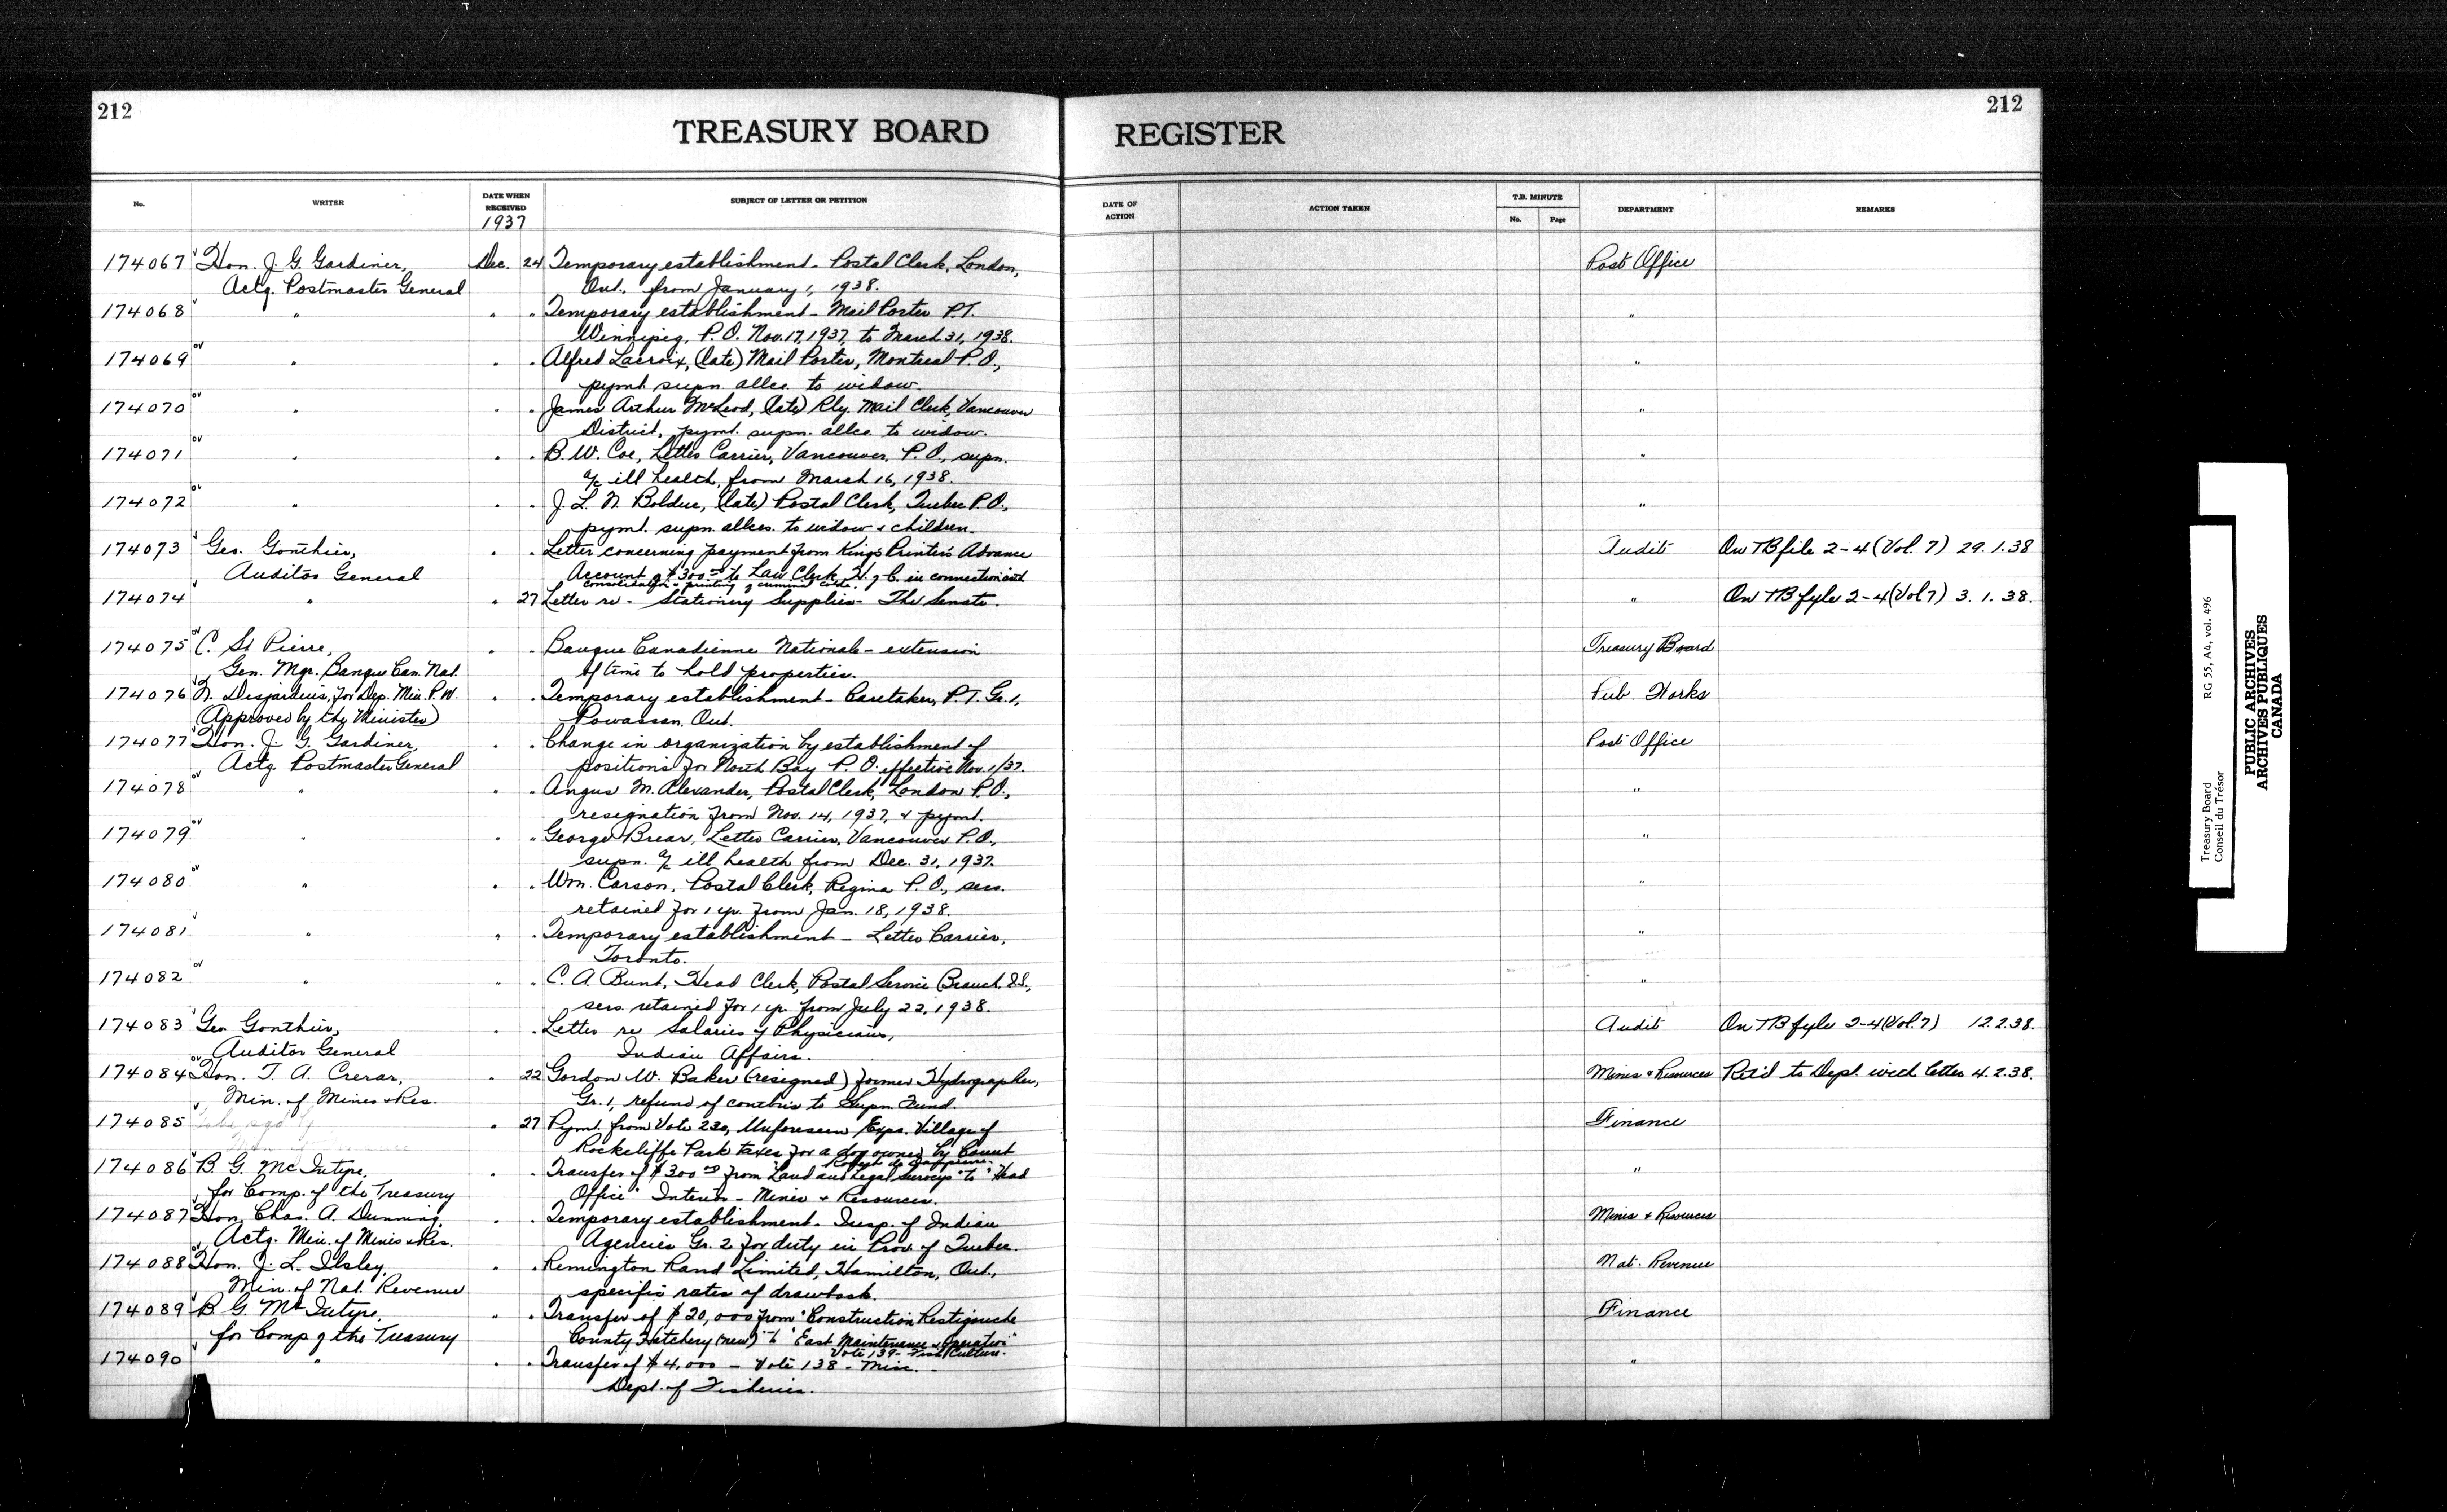 212
TREASURY BOARD
REGISTER
212
No.
WRITER
DATE WHEN RECEIVED
1937
SUBJECT OF LETTER OR PETITION
DATE OF ACTION
ACTION TAKEN
T.B. MINUTE
No.
Page
DEPARTMENT
REMARKS
174067 Hon. J. G. Gardiner, Dec. 24 Temporary establishment - Postal Clerk, London, Post Office
Actg. Postmaster General Ont. from January 1, 1938.
174068 " " " Temporary establishment - Mail Porter P.T. "
Winnipeg, P.O. Nov. 17, 1937, to March 31, 1938.
174069 " " " Alfred Lacroix, (late) Mail Porter, Montreal P.O., "
pymt. supn. allce. to widow.
174070 " " " James Arthur McLeod, (late) Rly. Mail Clerk, Vancouver "
District, pymt. supn. allce. to widow.
174071 " " " B. W. Coe, Letter Carrier, Vancouver, P.O., supn. "
a/c ill health, from March 16, 1938.
174072 " " " J. L. N. Bolduc, (late) Postal Clerk, Quebec P.O., "
pymt. supn. allces. to widow & children.
174073 Geo. Gonthier, " " Letter concerning payment from King's Printer's Advance Audit On TB file 2-4 (Vol. 7) 29.1.38
Auditor General Account of $300.00 to Law Clerk, H. of C. in connection with
consolidation & printing of criminal code.
174074 " " 27 Letter re - Stationery Supplies - The Senate. " On TB fyle 2-4 (Vol 7) 3.1.38.
174075 C. St Pierre, " " Banque Canadienne Nationale - extension Treasury Board
Gen. Mgr. Banque Can. Nat. of time to hold properties.
174076 N. Desjardins, for Dep. Min. P.W. " " Temporary establishment - Caretaker, P.T. Gr. 1, Pub. Works
(Approved by the Minister) Powassan, Ont.
174077 Hon. J. G. Gardiner, " " Change in organization by establishment of Post Office
Actg. Postmaster General positions for North Bay P.O. effective Nov. 1/37.
174078 " " " Angus M. Alexander, Postal Clerk, London P.O., "
resignation from Nov. 14, 1937, & pymt.
174079 " " " George Brear, Letter Carrier, Vancouver P.O., "
supn. a/c ill health from Dec. 31, 1937.
174080 " " " Wm. Carson, Postal Clerk, Regina P.O., sers. "
retained for 1 yr. from Jan. 18, 1938.
174081 " " " Temporary establishment - Letter Carrier, "
Toronto.
174082 " " " C. A. Bunt, Head Clerk, Postal Service Branch I.S., "
sers. retained for 1 yr. from July 22, 1938.
174083 Geo. Gonthier, " " Letter re Salaries of Physicians, Audit On TB fyle 2-4 (Vol. 7) 12.2.38.
Auditor General Indian Affairs.
174084 Hon. T. A. Crerar, " 22 Gordon W. Baker (resigned) former Hydrographer, Mines & Resources Ret'd to Dept. with letter 4.2.38.
Min. of Mines & Res. Gr. 1, refund of contbns to Supn. Fund.
174085 " 27 Pymt. from Vote 230, Unforeseen Exps. Village of Finance
Rockcliffe Park taxes for a dog owned by Count
Robert de
174086 B. G. McIntyre, " " Transfer of $300.00 from "Land and Legal Surveys" to "Head "
for Comp. of the Treasury Office" Interior - Mines & Resources.
174087 Hon. Chas. A. Dunning, " " Temporary establishment - Insp. of Indian Mines & Resources
Actg. Min. of Mines & Res. Agencies Gr. 2 for duty in Prov. of Quebec.
174088 Hon. J. L. Ilsley, " " Remington Rand Limited, Hamilton, Ont., Nat. Revenue
Min. of Nat. Revenue specific rates of drawback.
174089 B. G. McIntyre, " " Transfer of $20,000 from "Construction Restigouche Finance
for Comp of the Treasury County Hatchery (new)" to "East Maintenance & Operation"
Vote 139 - Fish Culture.
174090 " " " Transfer of $4,000 - Vote 138 - Misc. - "
Dept. of Fisheries.
Treasury Board RG 55, A4, vol. 496
Conseil du Trésor
PUBLIC ARCHIVES
ARCHIVES PUBLIQUES
CANADA